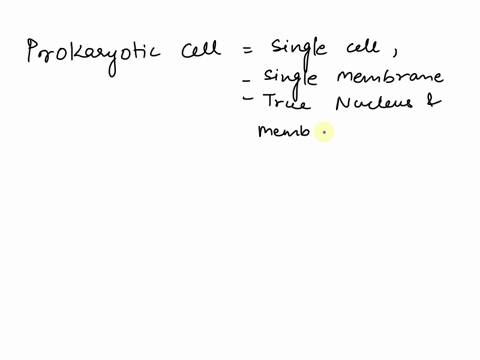 Prokaryotic cell = single cell,
- single membrane
- True Nucleus &
memb